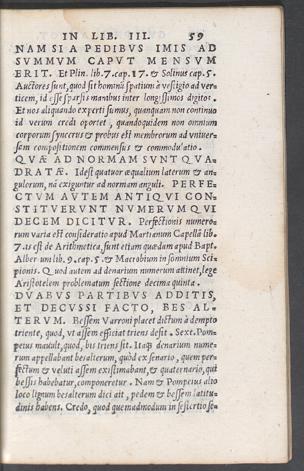 IN LIB. III. 59
NAM SI A PEDIBVS IMIS AD
SVMMVM CAPVT MENSVM
ERIT. Et Plin. lib. 7. cap. 17. & Solinus cap. 5.
Auctores sunt, quod sit hominũ spatium à vestigio ad ver-
ticem, id esse sparsis manibus inter longissimos digitos.
Et nos aliquando experti sumus, quanquam non continuo
id verum credi oportet, quandoquidem non omnium
corporum synceruset probus est membrorum ad vniuer-
sam compositionem commensus & commodulatio.
QVÆ AD NORMAM SVNT QVA-
DRATÆ. Idest quatuor æqualium laterum & an-
gulorum, nã exiguntur ad normam anguli. PERFE-
CTVM AVTEM ANTIQVI CON-
STITVERVNT NVMERVM QVI
DECEM DICITVR. Perfectionis numero-
rum varia est consideratio apud Martianum Capellã lib.
7. is est de Arithmetica, sunt etiam quædam apud Bapt.
Alber. um lib. 9. cap. 5. & Macrobium in somnium Sci-
pionis. Quod autem ad denarium numerum attinet, lege
Aristotelem problematum sectione decima quinta.
DVABVS PARTIBVS ADDITIS,
ET DECVSSI FACTO, BES AL-
TERVM. Bessem Varroni placet dictũ à dempto
triente, quod, vt assem efficiat triens desit. Sext. Pom-
peius mauult, quod, bis triens sit. Itaq; denarium nume-
rum appellabant besalterum, quòd ex senario, quem per-
fectum & veluti assem existimabant, & quaternario, qui
bessis habebatur, componeretur. Nam & Pompeius alio
loco lignum besalterum dici ait, pedem & bessem latitu-
dinis habens. Credo, quod quemadmodum in sestertio se-